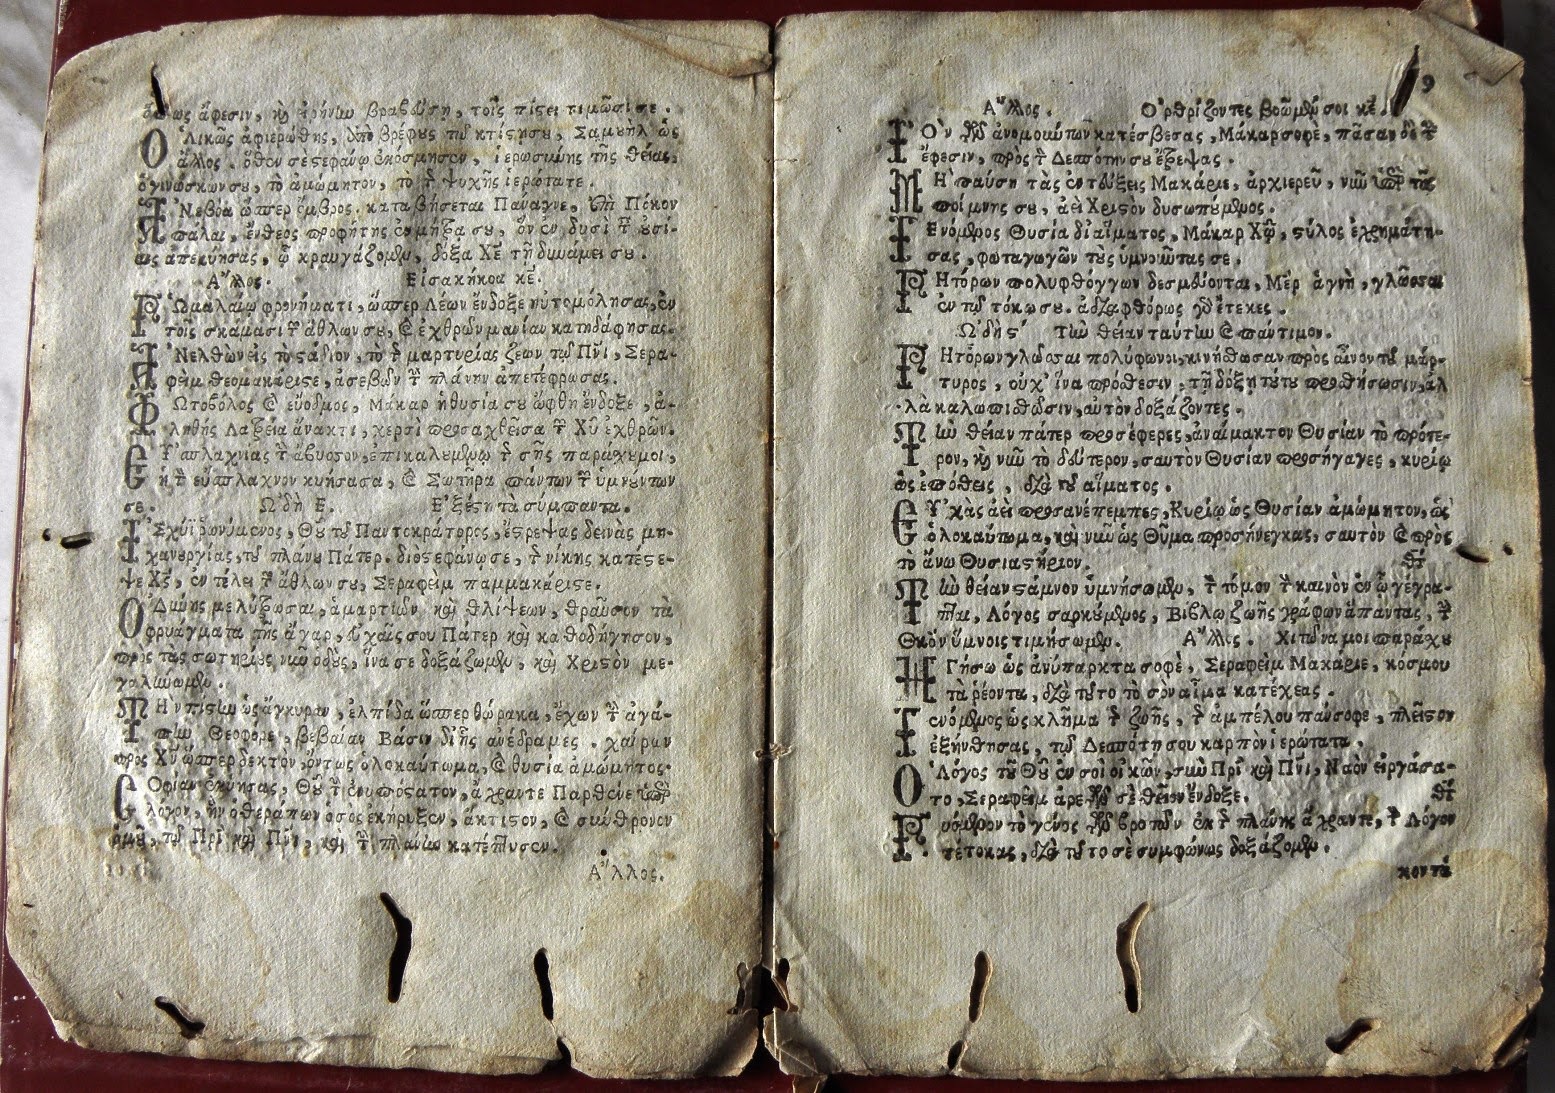 ἄφεσιν, καὶ εἰρήνην βραβεύση, τοῖς πίστει τιμῶσί σε.
Ὁλικῶς ἀφιερώθης, ἀπὸ βρέφους τῷ κτίστη σου, Σαμουὴλ ὡς
ἄλλος. ὅθεν σε στεφάνῳ ἐκόσμησεν, ἱερωσύνης τῆς θείας,
ὁ γινώσκων σου, τὸ ἀμώμητον, τὸ τῆς ψυχῆς ἱερώτατε.
Ἀνεβόα ὥσπερ ὄμβρος καταβήσεται Πάναγνε, ἐπὶ Πόκον
πάλαι, ἔνθεος προφήτης ἐν μήτρα σου, ὃν ἐν δυσὶ ταῖς οὐσί-
αις ἀπεκύησας, ᾧ κραυγάζομεν, δόξα Χὲ τῇ δυνάμει σου.
Ἄλλος. Εἰσακήκοα κὲ.
Ῥωμαλαίῳ φρονήματι, ὥσπερ Λέων ἔνδοξε ηὐτομόλησας, ἐν
τοῖς σκάμασι τῶν ἄθλων σου, καὶ ἐχθρῶν μανίαν κατηδάφησας.
Ἀνελθὼν εἰς τὸ στάδιον, τὸ τῆς μαρτυρίας ζέων τῷ Πνι, Σερα-
φεὶμ θεομακάριστε, ἀσεβῶν τὴν πλάνην ἀπετέφρωσας.
Φωτοβόλος καὶ εὔοδμος, Μάκαρ ἡ θυσία σου ὤφθη ἔνδοξε, ἀ-
ληθὴς Λατρεία ἄνακτι, χερσὶ προσαχθεῖσα τῶν Χῦ ἐχθρῶν.
Εὐσπλαχνίας τὴν ἄβυσσον, ἐπικαλουμένῳ τῆς σῆς παράσχου μοι,
ἡ τὸν εὔσπλαχνον κυήσασα, καὶ Σωτῆρα πάντων τῶν ὑμνούντων
σε. Ὠδὴ Ε. Ἐξέστη τὰ σύμπαντα.
Ἰσχύϊ ῥωνύμενος, Θῦ τοῦ Παντοκράτορος, ἔστρεψας δεινὰς μη-
χανουργίας, τοῦ πλάνου Πάτερ. διὸ στεφάνωσε, τῆς νίκης κατέστε-
ψε Χς, ἐν τέλει τῶν ἄθλων σου, Σεραφεὶμ παμμακάριστε.
Ὀδύνης με λύτρωσαι, ἁμαρτιῶν καὶ θλίψεων, θραῦσον τὰ
φρυάγματα τῆς ἄγαρ, εὐχαῖς σου Πάτερ καὶ καθοδήγησον,
πρὸς τὰς σωτηρίους νῦν ὁδοὺς, ἵνα σε δοξάζωμεν, καὶ Χριστὸν με-
γαλύνωμεν.
Τὴν πίστιν ὡς ἄγκυραν, ἐλπίδα ὥσπερ θώρακα, ἔχων τὴν ἀγά-
πην Θεοφόρε, βεβαίαν Βάσιν δι' ἧς ἀνέδραμες. χαίρων
πρὸς Χν ὥσπερ δεκτὸν, ὄντως ὁλοκαύτωμα, καὶ θυσία ἀμώμητος.
Σοφίαν ἐκύησας, Θῦ τὴν ἐνυπόστατον, ἄχραντε Παρθένε ὑπὲρ
λόγον, ἣν ὁ θεράπων ὁ σὸς ἐκήρυξεν, ἄκτιστον, καὶ σύνθρονον
ὁμοῦ, τῷ Πρὶ καὶ Πνὶ, καὶ τὴν πλάνην κατέπτυσεν.
Ἄλλος.
9
Ἄλλος. Ὀρθρίζοντες βοῶμέν σοι κὲ.
Ἰὸν τῶν ἀνομούντων κατέσβεσας, Μάκαρ σοφε, πᾶσαν δὲ τὴν
ἔφεσιν, πρὸς τὸν Δεσπότην σου ἔτρεψας.
Μὴ παύση τὰς ἐντεύξεις Μακάριε, ἀρχιερεῦ, νῦν ὑπὲρ τῆς
ποίμνης σου, ἀεὶ Χριστὸν δυσωπούμενος.
Γενόμενος Θυσία δι' αἵματος, Μάκαρ Χῷ, στύλος ἐχρημάτι-
σας, φωταγωγῶν τοὺς ὑμνοῦντας σε.
Ῥητόρων πολυφθόγγων δεσμεύονται, Μὲρ ἁγνὴ, γλῶσσαι
ἐν τῷ τόκω σου. ἀδιαφθόρως γὰρ ἔτεκες.
Ὠδὴ ς΄ Τὴν θείαν ταύτην καὶ πάντιμον.
Ῥητόρων γλῶσσαι πολύφωνοι, κινήθωσαν πρὸς αἶνον τοῦ μάρ-
τυρος, οὐχ' ἵνα πρόσθεσιν, τῇ δόξῃ τούτου προσθήσωσιν, ἀλ
λὰ καλωπισθῶσιν, αὐτὸν δοξάζοντες.
Τὴν θείαν πάτερ προσέφερες, ἀναίμακτον Θυσίαν τὸ πρότε-
ρον, καὶ νῦν τὸ δεύτερον, σαυτὸν Θυσίαν προσήγαγες, κυρίῳ
ὡς ἐπόθεις, διὰ τοῦ αἵματος.
Εὐχὰς ἀεὶ προσανέπεμπες, Κυρίῳ ὡς Θυσίαν ἀμώμητον, ὡς
ὁλοκαύτωμα, καὶ νῦν ὡς Θῦμα προσήνεγκας, σαυτὸν καὶ πρὸς
τὸ ἄνω Θυσιαστήριον.
Τὴν θείαν στάμνον ὑμνήσωμεν, τὸν τόμον τὸν καινὸν ἐν ᾧ γέγρα-
πται, Λόγος σαρκούμενος, Βίβλῳ ζωῆς γράφων ἅπαντας, τὴν
Θκον ὕμνοις τιμήσωμεν. Ἄλλος. Χιτῶνα μοι παράσχου
Ἡγήσω ὡς ἀνύπαρκτα σοφὲ, Σεραφεὶμ Μακάριε, κόσμου
τὰ ῥέοντα, διὰ τοῦτο τὸ σὸν αἷμα κατέχεας.
Γενόμενος ὡς κλῆμα τῆς ζωῆς, τῆς ἀμπέλου πάνσοφε, πλεῖστον
ἐξήνθησας, τῷ Δεσπότη σου καρπὸν ἱερώτατα.
Ὁ Λόγος τοῦ Θῦ ἐν σοὶ οἰκῶν, σὺν Πρὶ καὶ Πνὶ, Ναὸν εἰργάσα-
το, Σεραφεὶμ ἀρετῶν σὲ θεῖον ἔνδοξε.
Ῥυόμενον τὸ γένος τῶν βροτῶν ἐκ τῆς πλάνης ἄχραντε, τὸν Λόγον
τέτοκας, διὰ τοῦτο σὲ συμφώνως δοξάζομεν.
κοντά